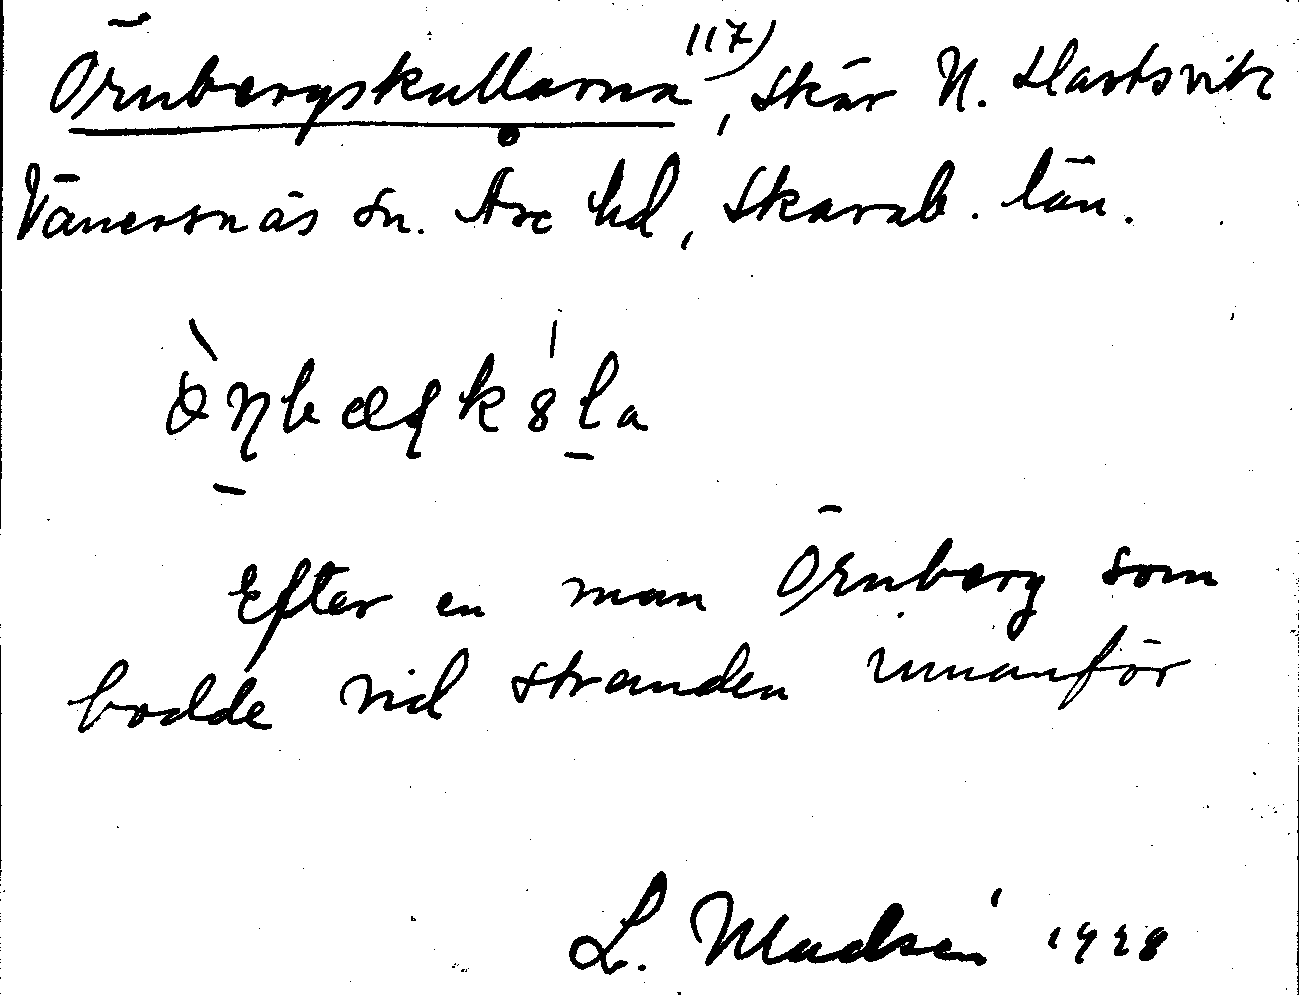 Örnbergskullarna 117), skär N. Hartsvik
Vänersnäs sn. Åse hd, Skarab. län.
Efter en man Örnberg som
bodde vid stranden innanför
L. Madsén 1928